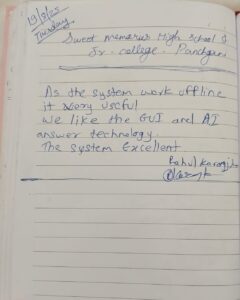 19/8/25
Tuesday
Sweet memories High school &
Jr. college. Panchgani
As the system work offline
it very useful
We like the GUI and AI
answer technology.
The system Excellent
Rahul